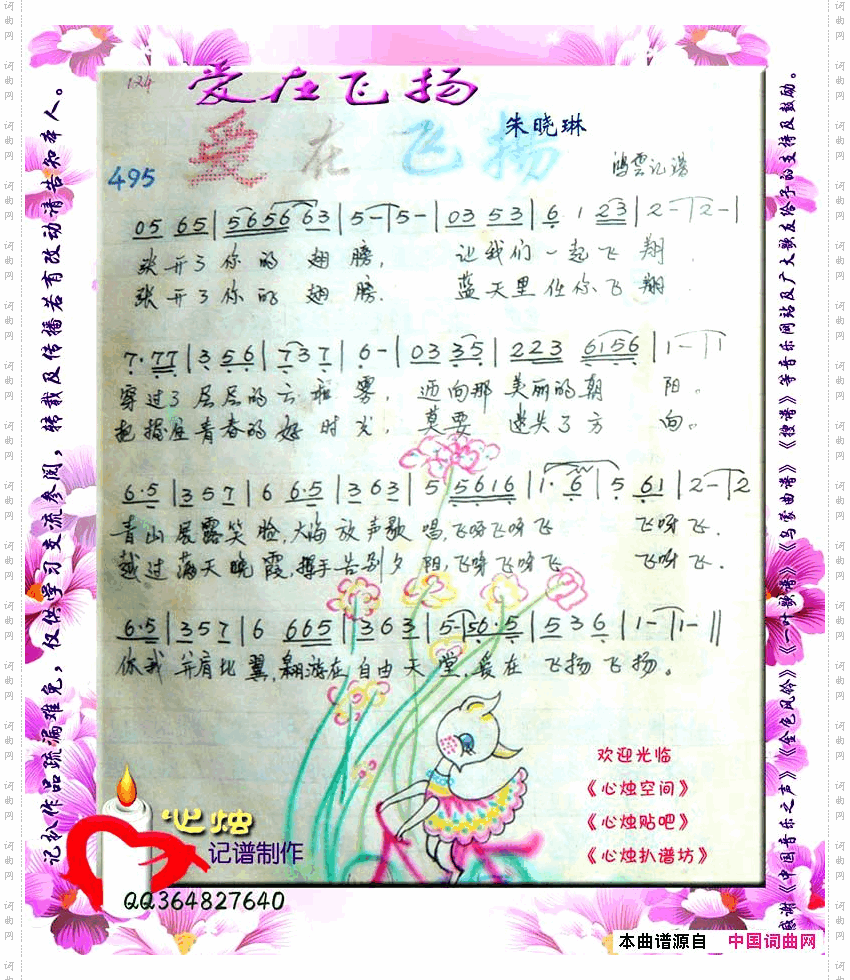 124
爱在飞扬
爱在飞扬
朱晓琳
495
鸿雲记谱
05 65|565663|5-|5-|03 53|6 1 23|2-|2-|
张开了你的翅膀, 让我们一起飞翔.
张开了你的翅膀. 蓝天里任你飞翔.
7·77|356|737|6-|03 35|223 6156|1-|1
穿过了层层的云和雾, 迈向那美丽的朝阳。
把握住青春的好时光, 莫要迷失了方向。
6·5|357|6 6·5|363|5 5616|1·6|5 61|2-|2
青山展露笑脸,大海放声歌唱,飞呀飞呀飞 飞呀飞.
越过满天晚霞,挥手告别夕阳,飞呀飞呀飞 飞呀飞.
6·5|357|6 665|363|5-|56·5|536|1-|1-||
你我并肩比翼,翱游在自由天堂,爱在飞扬飞扬。
欢迎光临
《心烛空间》
《心烛贴吧》
《心烛扒谱坊》
心烛
记谱制作
QQ364827640
记扒作品疏漏难免，仅供学习交流参阅，转载及传播若有改动请告知本人。
感谢《中国音乐之声》《金色风铃》《一叶歌谱》《乌蒙曲谱》《搜谱》等音乐网站及广大歌友给予的支持及鼓励。
本曲谱源自 中国词曲网
词曲网